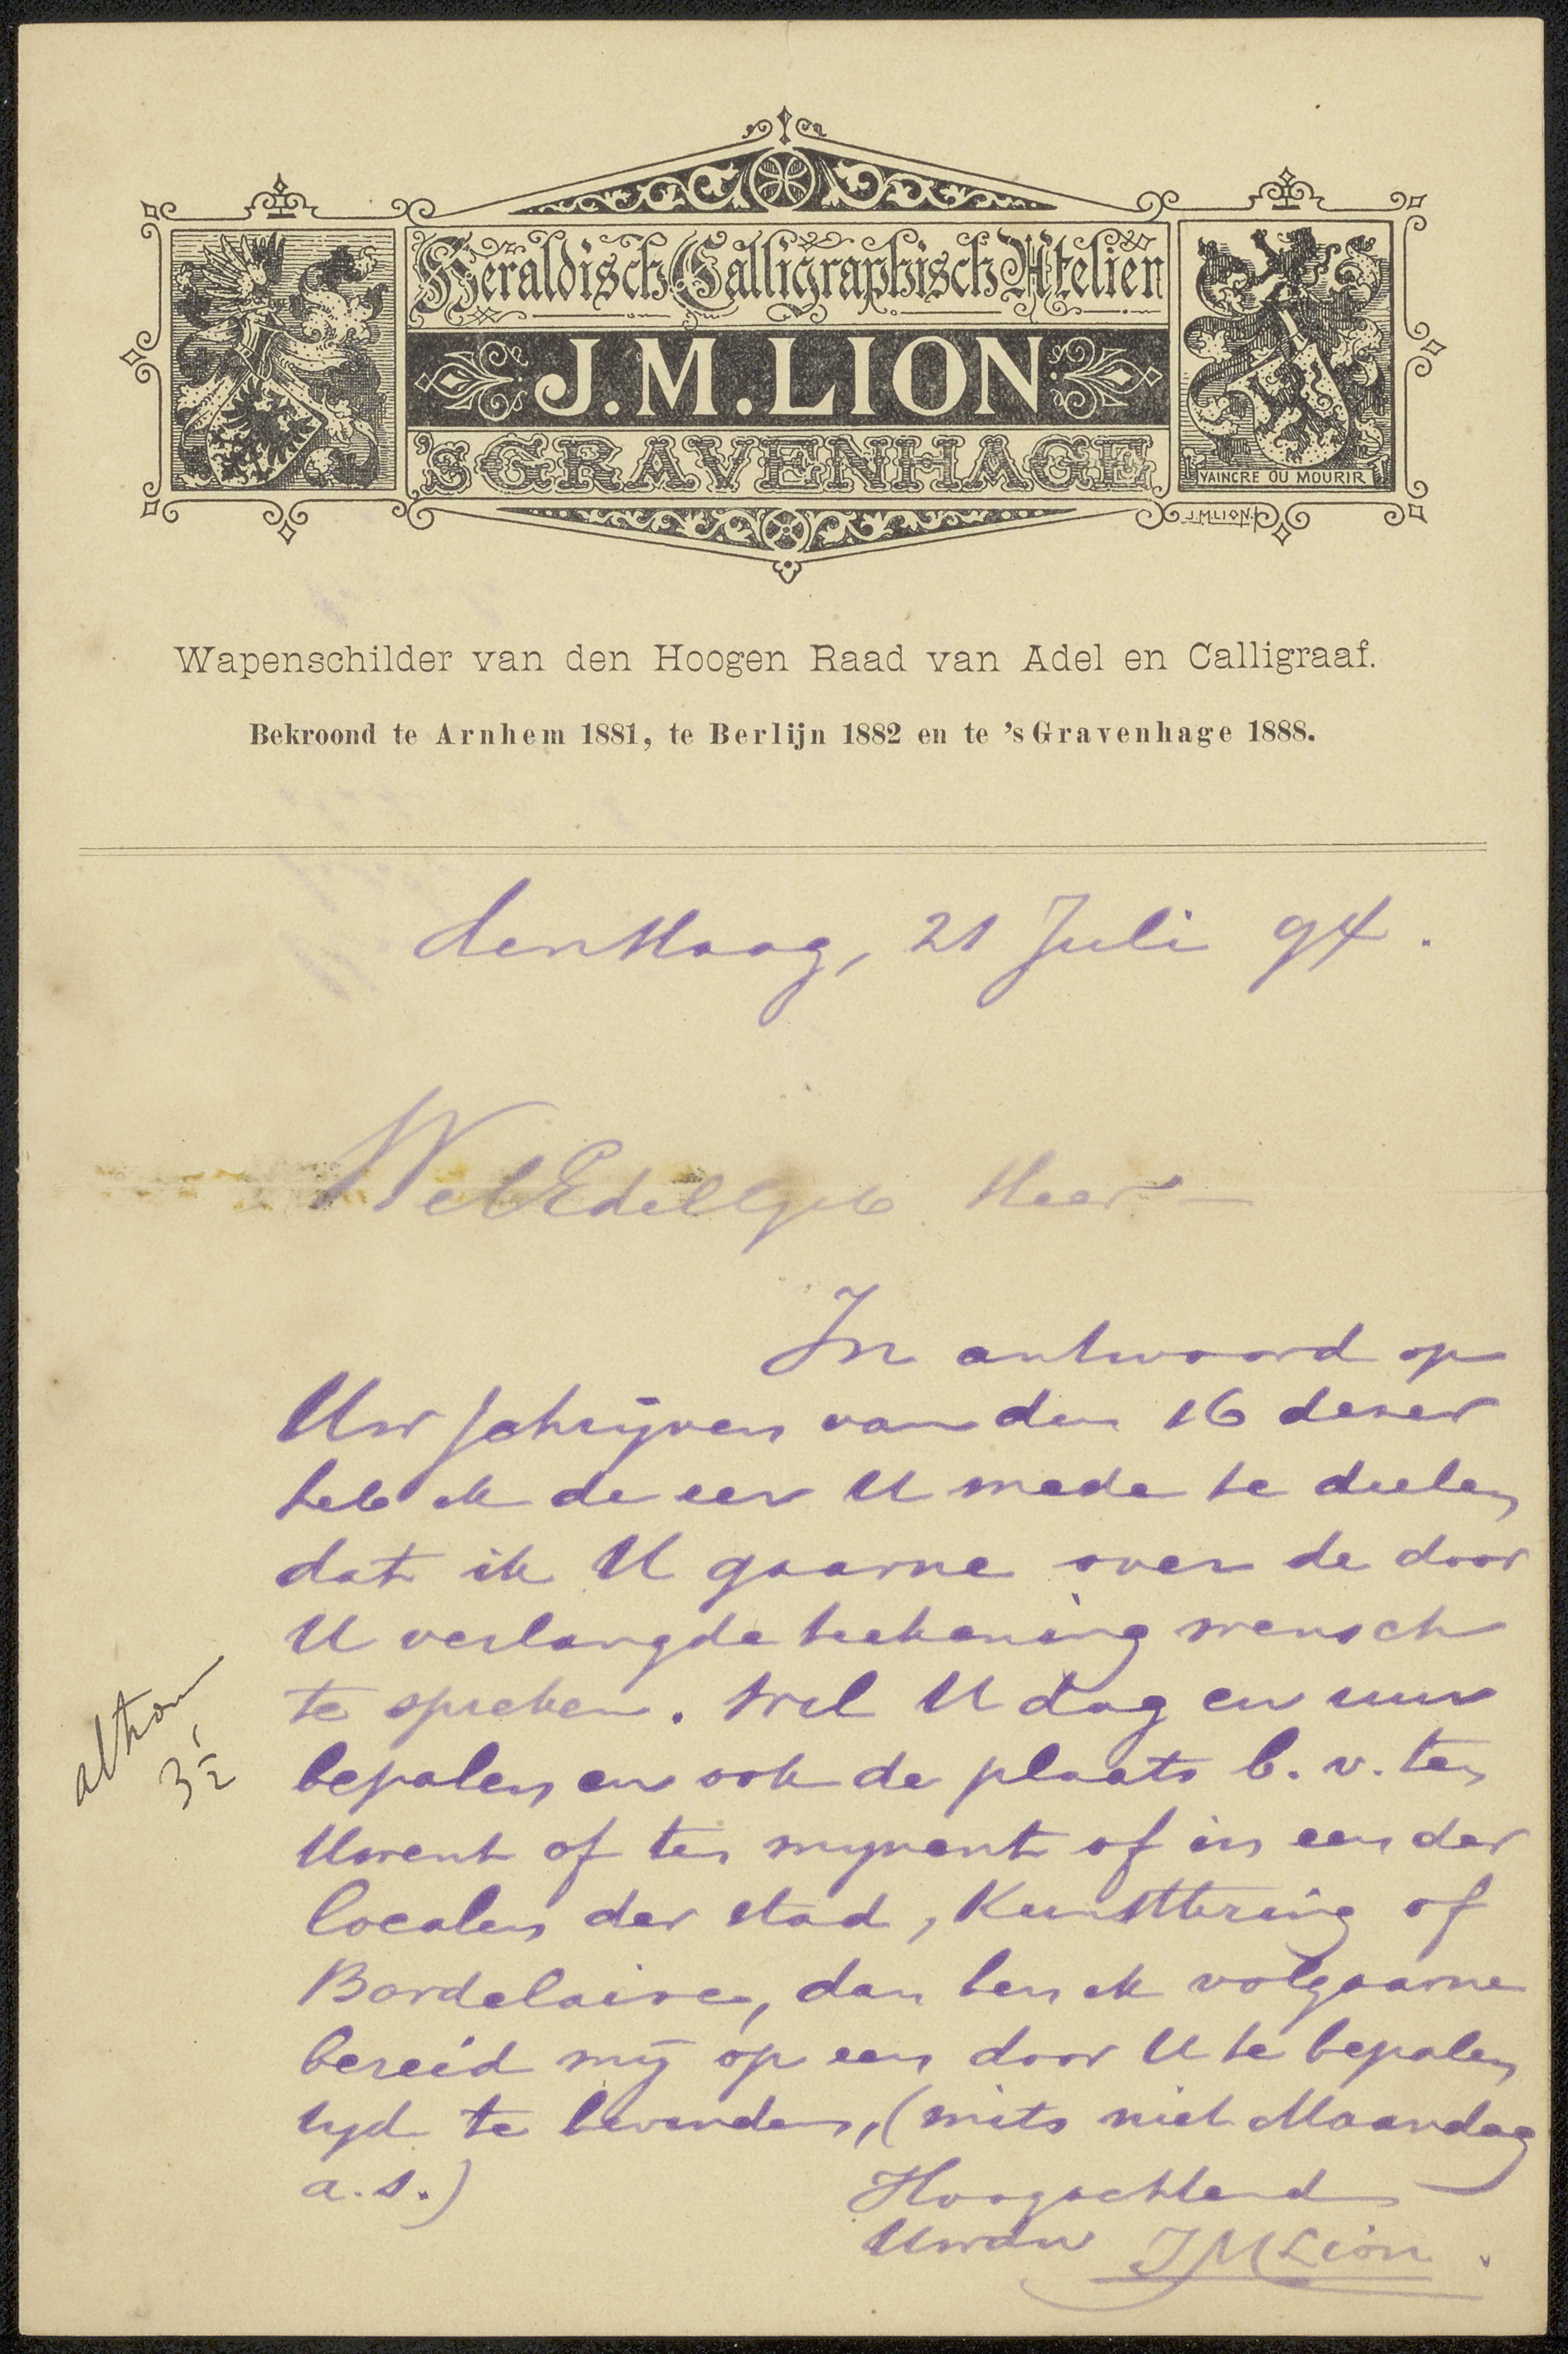 Heraldisch Calligraphisch Atelier
J. M. LION
'sGRAVENHAGE
VAINCRE OU MOURIR
J.M.LION.
Wapenschilder van den Hoogen Raad van Adel en Calligraaf.
Bekroond te Arnhem 1881, te Berlijn 1882 en te 'sGravenhage 1888.
den Haag, 21 Juli 94.
WelEdelgeb Heer
In antwoord op
Uw schrijven van den 16 dezer
heb ik de eer U mede te deelen
dat ik U gaarne over de door
U verlangde teekening wensch
te spreken. Wil U dag en uur
bepalen en ook de plaats b. v. ten
Uwent of ten mijnent of in een der
localen der stad, Kunstkring of
Bordelaise, dan ben ik volgaarne
bereid mij op een door U te bepalen
tijd te bevinden, (mits niet Maandag
a. s.)
Hoogachtend
Uwdw JMLion.
3 1/2